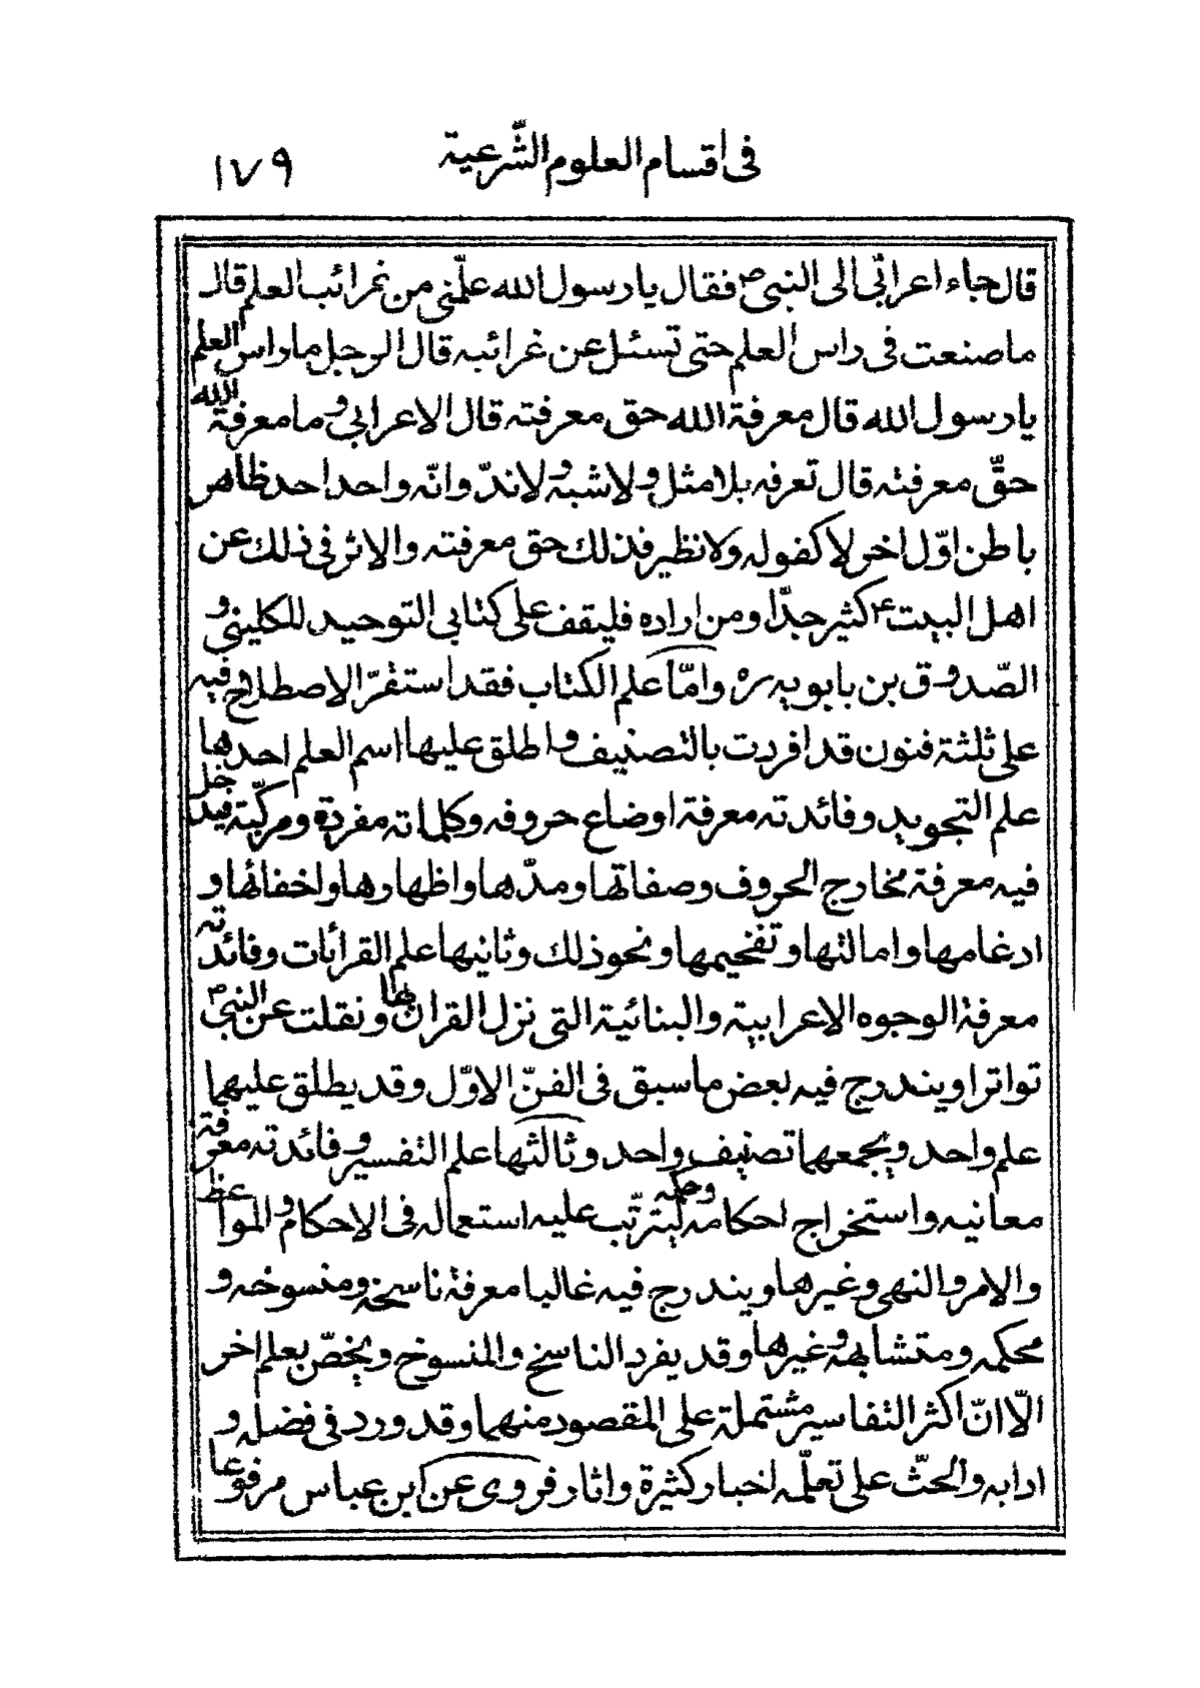 فى اقسام العلوم الشّرعية ١٧٩
قال جاء اعرابّى الى النبى ص فقال يا رسول الله علّمنى من غرائب العلم قال
ما صنعت فى راس العلم حتى تسئل عن غرائبه قال الرجل ما راس العلم
يا رسول الله قال معرفة الله حق معرفته قال الاعرابى و ما معرفة الله
حقّ معرفته قال تعرفه بلا مثل و لا شبه و لا ندّ و انّه واحد احد ظاهر
باطن اوّل اخر لا كفو له ولا نظير فذلك حق معرفته والاثر فى ذلك عن
اهل البيت ع كثير جدّا ومن اراده فليقف على كتابى التوحيد للكلينى و
الصّدوق بن بابويه ره وامّا علم الكتاب فقد استقرّ الاصطلاح فيه
على ثلثة فنون قد افردت بالتصنيف و اطلق عليها اسم العلم احدها
علم التجويد وفائدته معرفة اوضاع حروفه وكلماته مفردة ومركّبة فيدخل
فيه معرفة مخارج الحروف وصفاتها ومدّها واظهارها واخفائها و
ادغامها وامالتها وتفخيمها ونحو ذلك وثانيها علم القرائات وفائدته
معرفة الوجوه الاعرابية والبنائية التى نزل القران بها ونقلت عن النبى ص
تواترا ويندرج فيه بعض ما سبق فى الفنّ الاوّل وقد يطلق عليهما
علم واحد ويجمعهما تصنيف واحد وثالثها علم التفسير و فائدته معرفة
معانيه واستخراج احكامه وحكمه ليترتّب عليه استعماله فى الاحكام و المواعظ
والامر والنهى وغيرها ويندرج فيه غالبا معرفة ناسخه ومنسوخه و
محكمه ومتشابهه وغيرها وقد يفرد الناسخ والمنسوخ ويخصّ بعلم اخر
الّا انّ اكثر التفاسير مشتملة على المقصود منهما وقد ورد فى فضله و
ادابه والحثّ على تعلّمه اخبار كثيرة واثار فروى عن ابن عباس مرفوعا